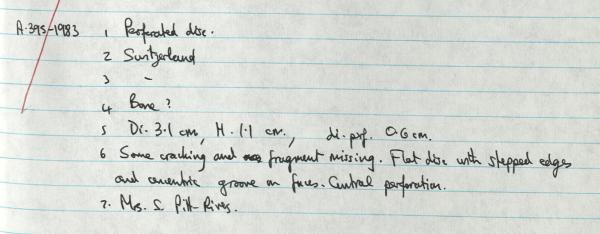 A.395-1983 1 Perforated disc.
2 Switzerland
3 -
4 Bone?
5 Di. 3.1 cm, H. 1.1 cm, di. perf. 0.6 cm.
6 Some cracking and fragment missing. Flat disc with stepped edges
and concentric groove on faces. Central perforation.
7. Mrs. S. Pitt-Rivers.